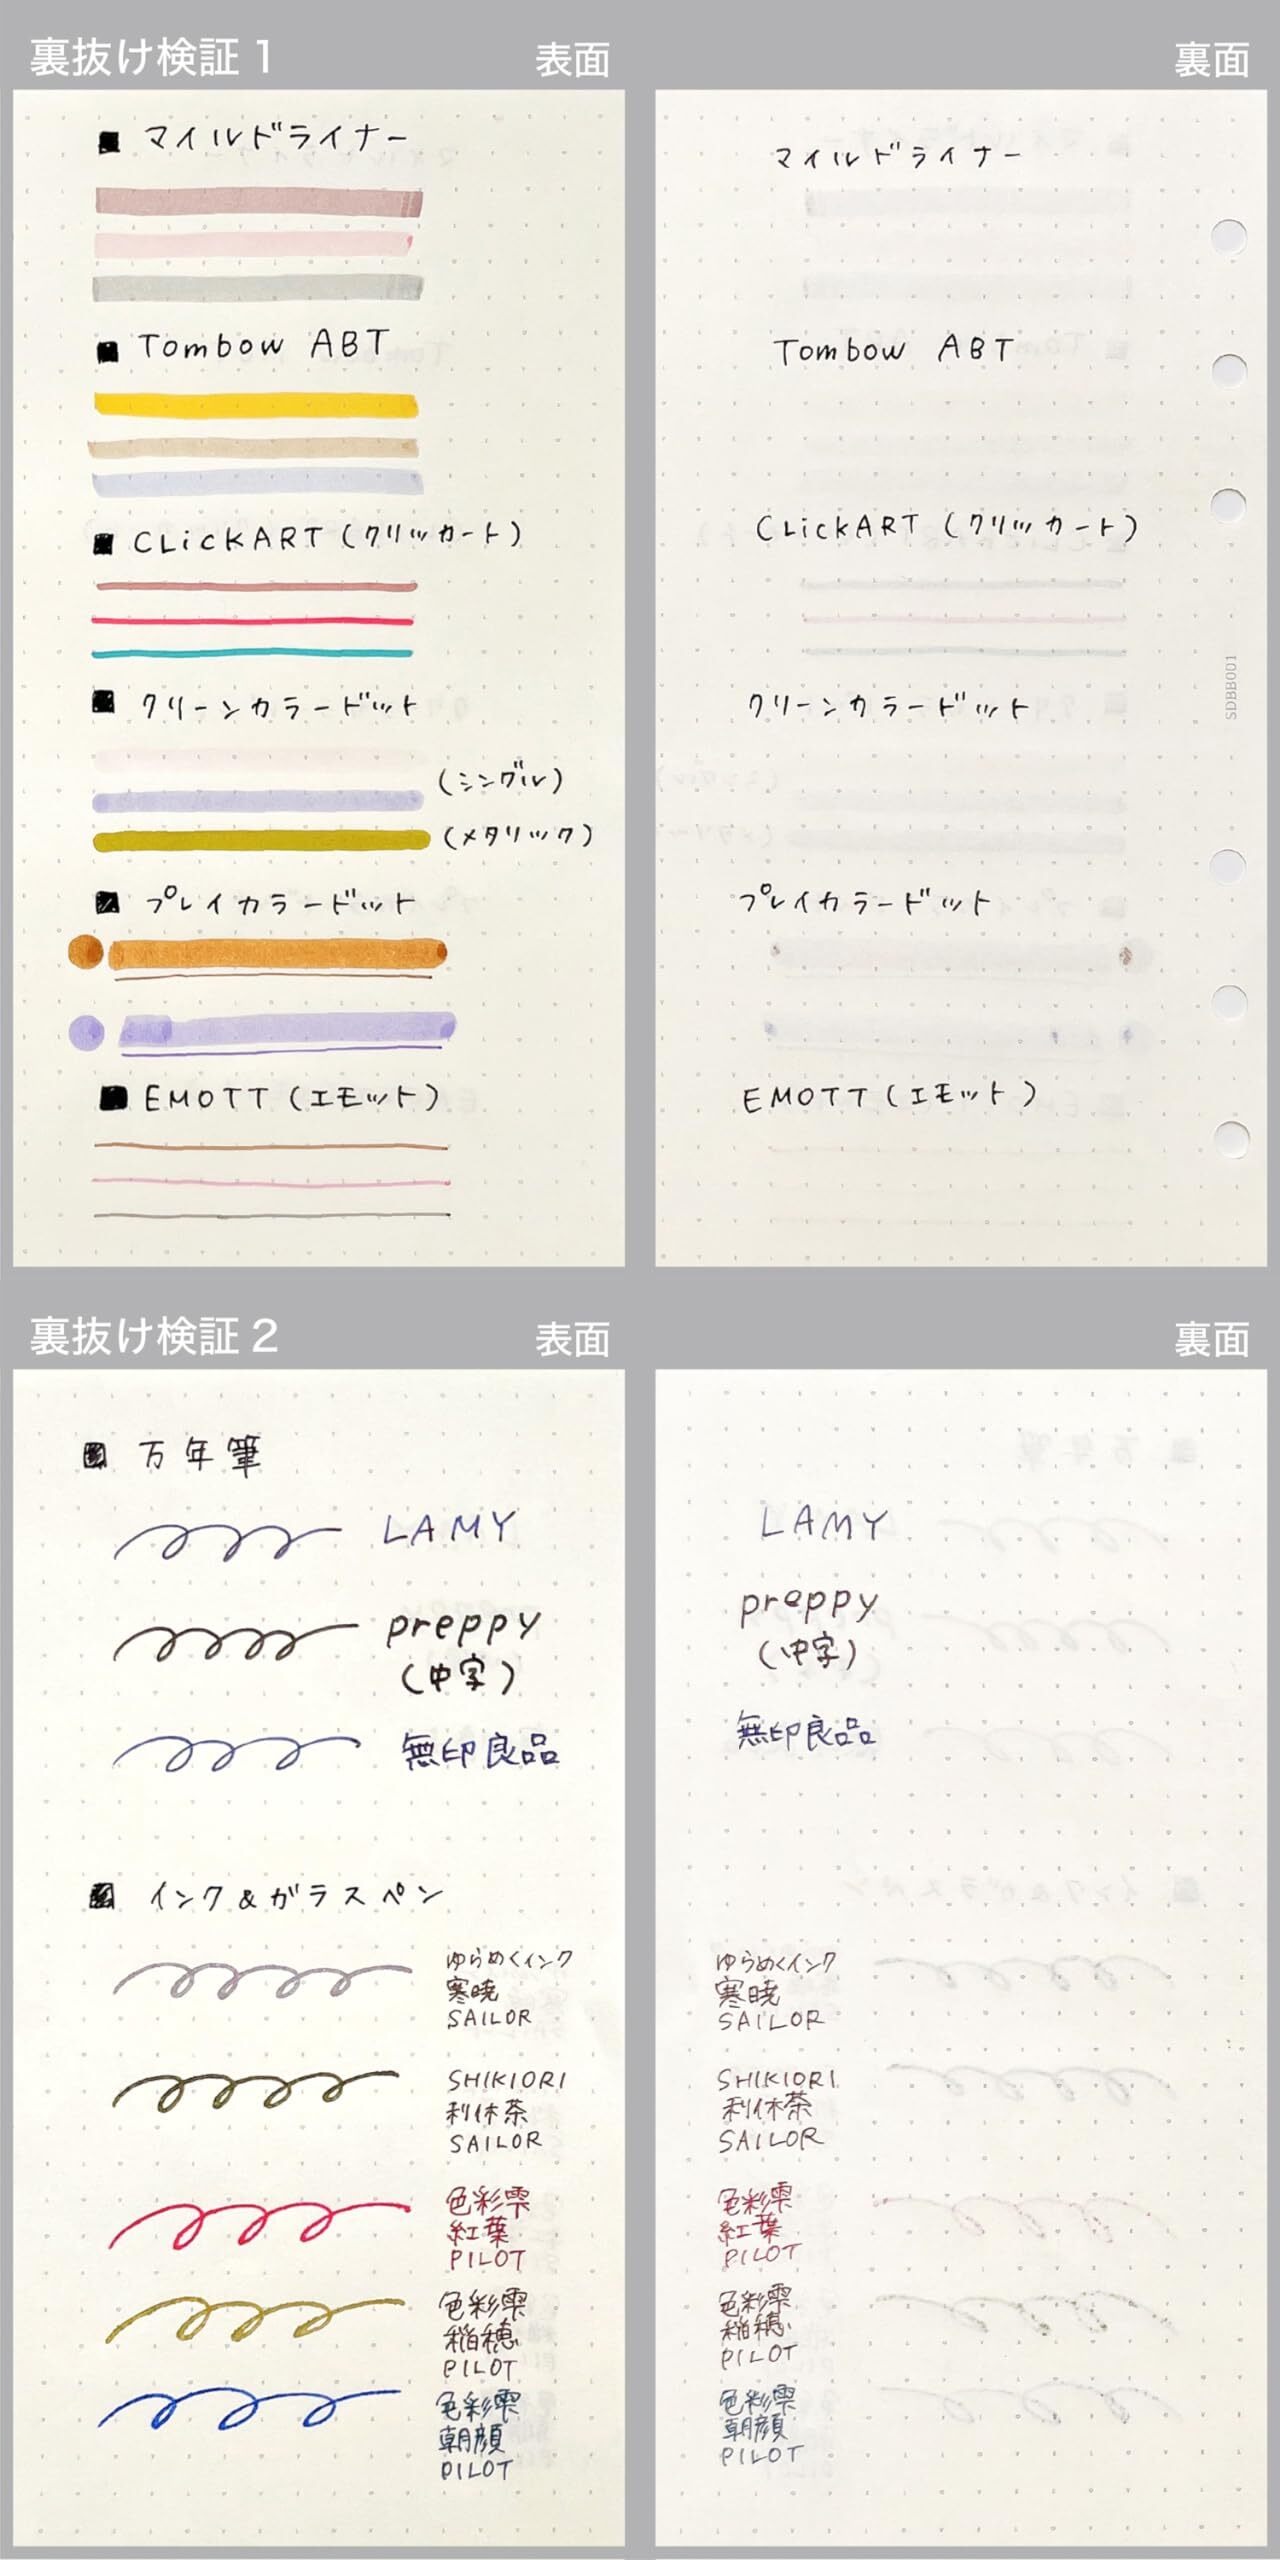 裏抜け検証 1
表面
裏面
■ マイルドライナー
■ Tombow ABT
■ CLickART (クリッカート)
■ クリーンカラードット
(シングル)
(メタリック)
■ プレイカラードット
■ EMOTT (エモット)
マイルドライナー
Tombow ABT
CLickART (クリッカート)
クリーンカラードット
プレイカラードット
EMOTT (エモット)
SDBB001
裏抜け検証 2
表面
裏面
■ 万年筆
LAMY
preppy
(中字)
無印良品
■ インク&ガラスペン
ゆらめくインク
寒暁
SAILOR
SHIKIORI
利休茶
SAILOR
色彩雫
紅葉
PILOT
色彩雫
稲穂
PILOT
色彩雫
朝顔
PILOT
LAMY
preppy
(中字)
無印良品
ゆらめくインク
寒暁
SAILOR
SHIKIORI
利休茶
SAILOR
色彩雫
紅葉
PILOT
色彩雫
稲穂
PILOT
色彩雫
朝顔
PILOT